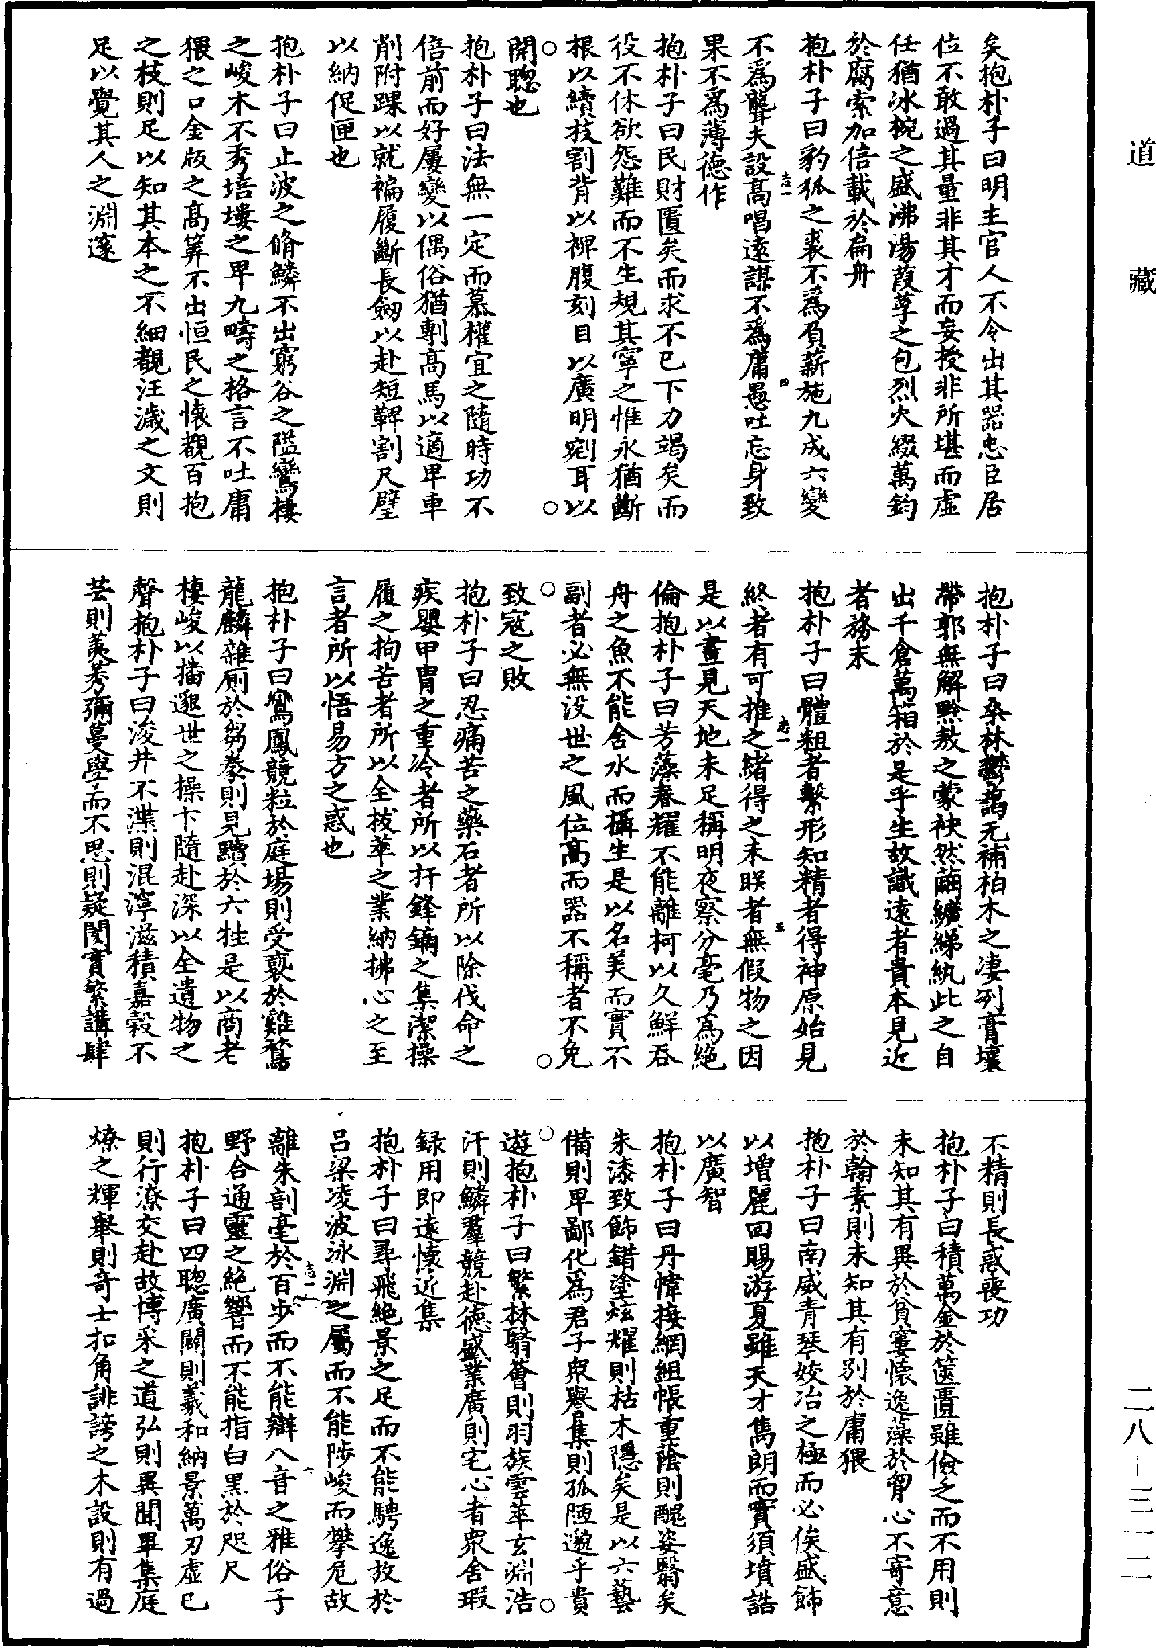 道藏
矣抱朴子曰明主官人不令出其器忠臣居
位不敢過其量非其才而妄授非所堪而虛
任猶冰椀之盛沸湯葭莩之包烈火綴萬鈞
於腐索加倍載於扁舟
抱朴子曰豹狐之裘不爲負薪施九成六變
不爲聾夫設高唱遠謀不爲庸愚吐忘身致
果不爲薄德作
抱朴子曰民財匱矣而求不已下力竭矣而
役不休欲怨難而不生規其寧之惟永猶斷
根以續枝割背以裨腹刻目以廣明剜耳以
開聰也
抱朴子曰法無一定而慕權宜之隨時功不
倍前而好屢變以偶俗猶剸高馬以適卑車
削附踝以就褊履斷長劒以赴短鞞割尺璧
以納促匣也
抱朴子曰止波之脩鱗不出窮谷之隘鸞棲
之峻木不秀培塿之卑九疇之格言不吐庸
猥之口金版之高筭不出恒民之懷觀百抱
之枝則足以知其本之不細覩汪濊之文則
足以覺其人之淵邃
抱朴子曰桑林鬱藹无補柏木之凄冽膏壤
帶郭無解黔敖之蒙袂然繭纊綈紈此之自
出千倉萬箱於是乎生故識遠者貴本見近
者務末
抱朴子曰體粗者繫形知精者得神原始見
終者有可推之緒得之未眹者無假物之因
是以晝見天地未足稱明夜察分毫乃爲絕
倫抱朴子曰芳藻春耀不能離柯以久鮮吞
舟之魚不能舍水而攝生是以名美而實不
副者必無没世之風位高而器不稱者不免
致寇之敗
抱朴子曰忍痛苦之藥石者所以除伐命之
疾嬰甲冑之重冷者所以扞鋒鏑之集潔操
履之拘苦者所以全拔萃之業納拂心之至
言者所以悟易方之惑也
抱朴子曰鸞鳳競粒於庭場則受䙝於雞鶩
龍麟雜厠於芻豢則見黷於六牲是以商老
棲峻以播邈世之操卞隨赴深以全遺物之
聲抱朴子曰浚井不渫則混濘滋積嘉穀不
芸則荑莠彌蔓學而不思則疑閡實繁講肆
不精則長惑喪功
抱朴子曰積萬金於篋匱雖儉乏而不用則
未知其有異於貧寠懷逸藻於胷心不寄意
於翰素則未知其有別於庸猥
抱朴子曰南威青琴姣冶之極而必俟盛飾
以增麗回賜游夏雖天才雋朗而實須墳誥
以廣智
抱朴子曰丹幃接網組帳重蔭則醜姿翳矣
朱漆致飾錯塗炫耀則枯木隱矣是以六藝
備則卑鄙化爲君子衆譽集則孤陋邈乎貴
遊抱朴子曰繁林翳薈則羽族雲萃玄淵浩
汗則鱗羣競赴德盛業廣則宅心者衆舍瑕
録用即遠懷近集
抱朴子曰尋飛絕景之足而不能騁逸放於
呂梁凌波泳淵之屬而不能陟峻而攀危故
離朱剖毫於百步而不能辯八音之雅俗子
野合通靈之絕響而不能指白黑於咫尺
抱朴子曰四聰廣闢則羲和納景萬刃虛己
則行潦交赴故博采之道弘則異聞畢集庭
燎之輝舉則奇士扣角誹謗之木設則有過
二八—三一二